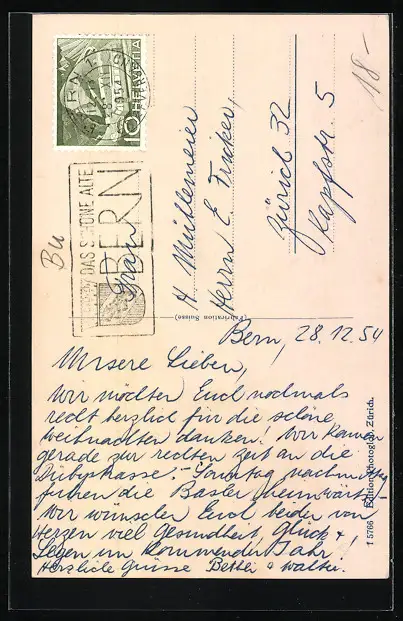 Bern, 28.12.54
Unsere Lieben,
Wir möchten Euch nochmals
recht herzlich für die schöne
Weihnachten danken! Wir kamen
gerade zur rechten Zeit an die
Sonntag nachmittag
fuhren die Basler heimwärts.
Wir wünschen Euch beiden von
Herzen viel Gesundheit, Glück +
Segen im kommenden Jahr!
Herzliche Grüsse Bethli & Walter.
Frau
H. Mühlemeier
Herrn E.
Zürich 32
Kapfstr. 5
18-
Bu
HELVETIA
10
BERN 1
1954
DAS SCHÖNE ALTE
BERN
(Fabrication Suisse)
1 5766 Edition Photoglob, Zürich.